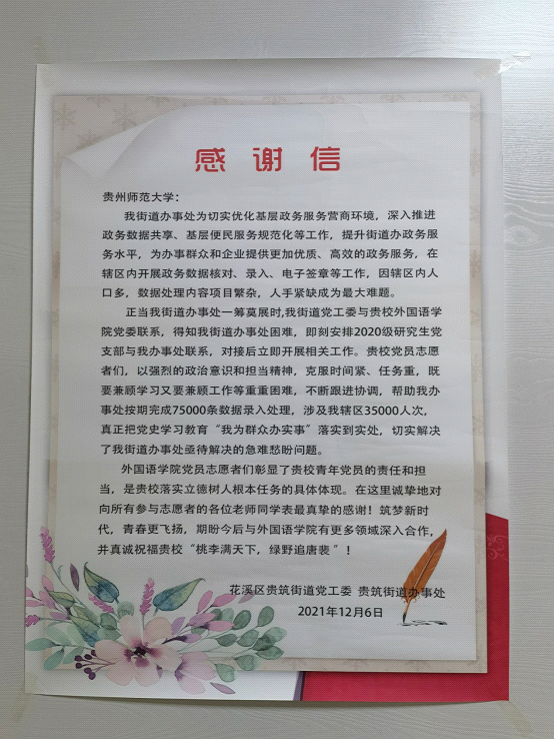 感谢信
贵州师范大学：
我街道办事处为切实优化基层政务服务营商环境，深入推进
政务数据共享、基层便民服务规范化等工作，提升街道办政务服
务水平，为办事群众和企业提供更加优质、高效的政务服务，在
辖区内开展政务数据核对、录入、电子签章等工作，因辖区内人
口多，数据处理内容项目繁杂，人手紧缺成为最大难题。
正当我街道办事处一筹莫展时,我街道党工委与贵校外国语学
院党委联系，得知我街道办事处困难，即刻安排2020级研究生党
支部与我办事处联系，对接后立即开展相关工作。贵校党员志愿
者们，以强烈的政治意识和担当精神，克服时间紧、任务重，既
要兼顾学习又要兼顾工作等重重困难，不断跟进协调，帮助我办
事处按期完成75000条数据录入处理，涉及我辖区35000人次，
真正把党史学习教育“我为群众办实事”落实到实处，切实解决
了我街道办事处亟待解决的急难愁盼问题。
外国语学院党员志愿者们彰显了贵校青年党员的责任和担
当，是贵校落实立德树人根本任务的具体体现。在这里诚挚地对
向所有参与志愿者的各位老师同学表最真挚的感谢！筑梦新时
代，青春更飞扬，期盼今后与外国语学院有更多领域深入合作，
并真诚祝福贵校“桃李满天下，绿野追唐裴”！
花溪区贵筑街道党工委 贵筑街道办事处
2021年12月6日